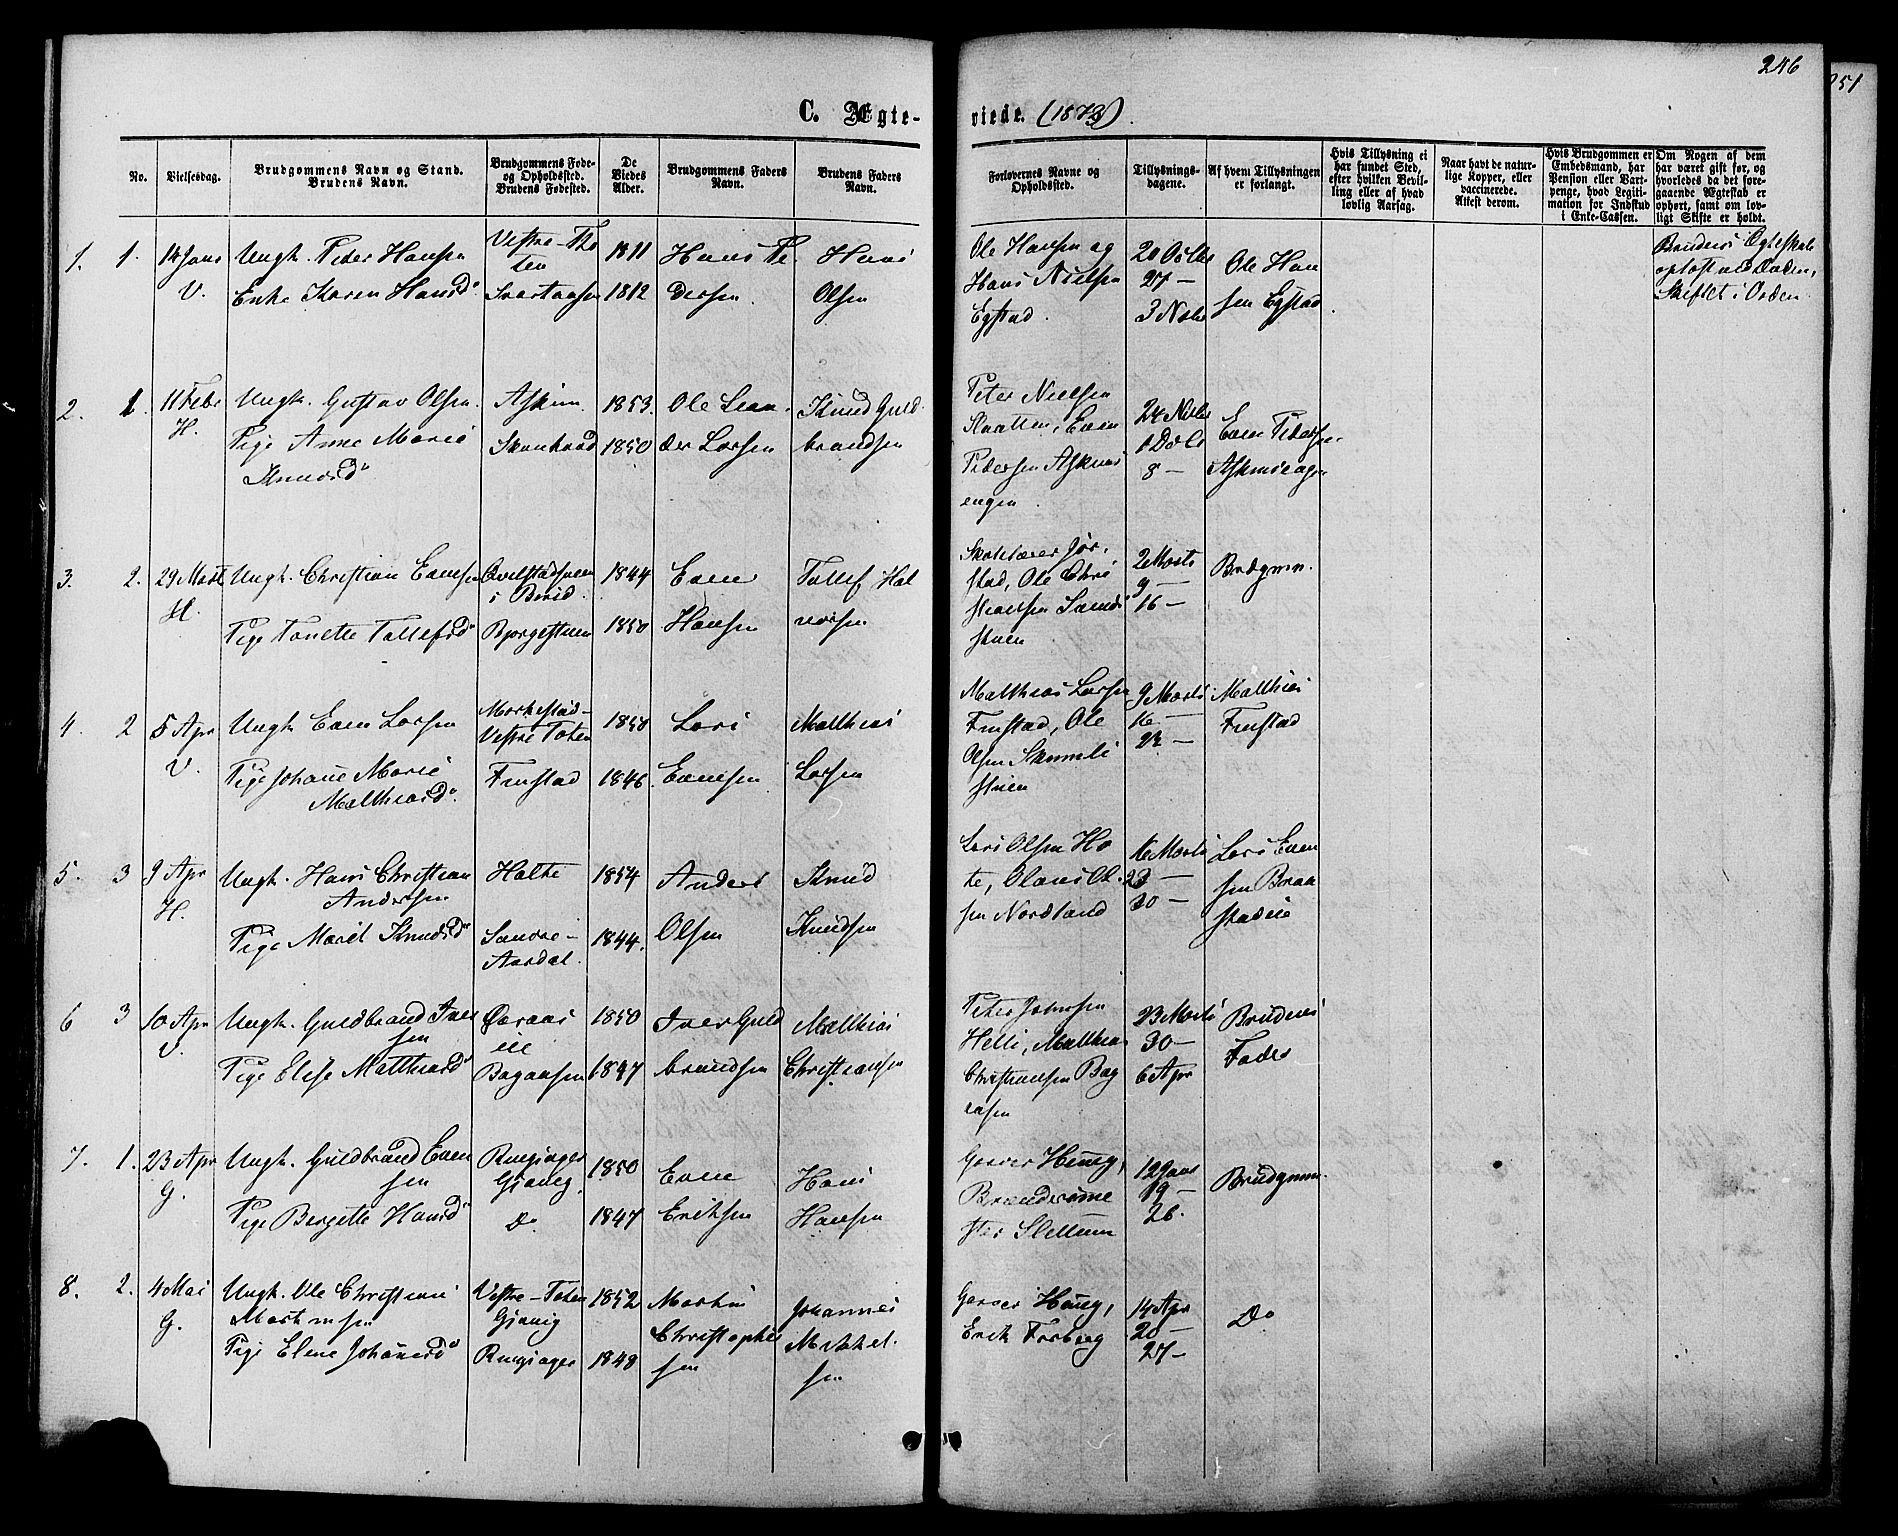 246
251
C. Ægte-
viede. (1873).
No.
Vielsesdag.
Brudgommens Navn og Stand.
Brudens Navn.
Brudgommens Føde-
og Opholdssted.
Brudens Fødested.
De
Viedes
Alder.
Brudgommens Faders
Navn.
Brudens Faders
Navn.
Forlovernes Navne og
Opholdssted.
Tillysnings-
dagene.
Af hvem Tillysningen
er forlangt.
Hvis Tillysning ei
har fundet Sted,
efter hvilken Bevil-
ling eller af hvad
lovlig Aarsag.
Naar havt de natur-
lige Kopper, eller
vaccinerede.
Attest derom.
Hvis Brudgommen er
Embedsmand, har
Pension eller Vart-
penge, hvad Legiti-
mation for Indskud
i Enke-Cassen.
Om Nogen af dem
har været gift før, og
hvorledes da det fore-
gaaende Ægteskab er
ophørt, samt om lov-
ligt Skifte er holdt.
1. 1. 14 Janr
V.
Ungk. Peder Hansen
Enke Karen Hansd
Vestre-Tho
ten
1811
1812
Hans Pe
dersen
Hans
Olsen
Ole Hansen og
Hans Nielsen
Egstad.
20 Octbr
27 —
3 Nvbr
Ole Han
sen Egstad
Brudens Ægteskab
opløst ved Døden,
Skiftet i Orden
2. 1. 11 Febr
H.
Ungk. Gustav Olsen.
Pige Anne Marie
Knudsd
1853.
1850
Ole Lean
der Larsen
Knud Guld
brandsen
Peter Nielsen
Even
Pedersen
engen
24 Nvbr
1 Dcbr
8 —
Even Pedersen
3. 2. 29 Marts
H.
Ungk. Christian Evensen
Pige Tonette Tollefsd
i Birid.
Bjørgestuen
1844
1850
Even
Hansen
Tollef Hal
vorsen
Skolelærer Jør
stad, Ole Chri
stiansen
stuen
2 Marts
9 —
16 —
Brudgmn.
4. 2 5 Apr
V.
Ungk Even Larsen
Pige Johane Marie
Mathiasd.
Vestre Toten
Finstad
1850
1846.
Lars
Evensen
Matthias
Larsen
Matthias Larsen
Finstad, Ole
Olsen
stuen
9 Marts
16 —
23 —
Matthias
Finstad
5. 3 9 Apr
H.
Ungk. Hans Christian
Andersen
Pige Marit Knudsd
Holte
Søndre-
Aurdal.
1854
1844.
Anders
Olsen
Knud
Knudsen
Lars Olsen Ho
te, Olaus Ol
sen Nordland
16 Marts
23 —
30 —
Lars Even
sen Braa
6 3 10 Apr
V.
Ungk. Guldbrand Iver
sen
Pige Elise Matthiasd
1850
1847
Iver Guld
brandsen
Matthias
Christiansen
Peter Johnsen
Helli, Matthias
Christiansen Bag
aasen
23 Marts
30 —
6 Apr
Brudens
Fader
7. 1. 23 Apr
G.
Ungk. Guldbrand Even
sen
Pige Bergette Hansd
Gjøvig.
Do
1850
1847
Even
Eriksen
Hans
Hansen
Garver Haug,
Slettum
12 Janr
19 —
26.
Brudgmn.
8. 2. 4 Mai
G.
Ungk. Ole Christian
Martinsen
Pige Elene Johanesd
Vestre-Toten
Gjøvig
1852
1848
Martin
Christopher
sen
Johannes
Mikkel
sen
Garver Haug,
Erik Forberg
14 Apr
20 —
27 —
Do